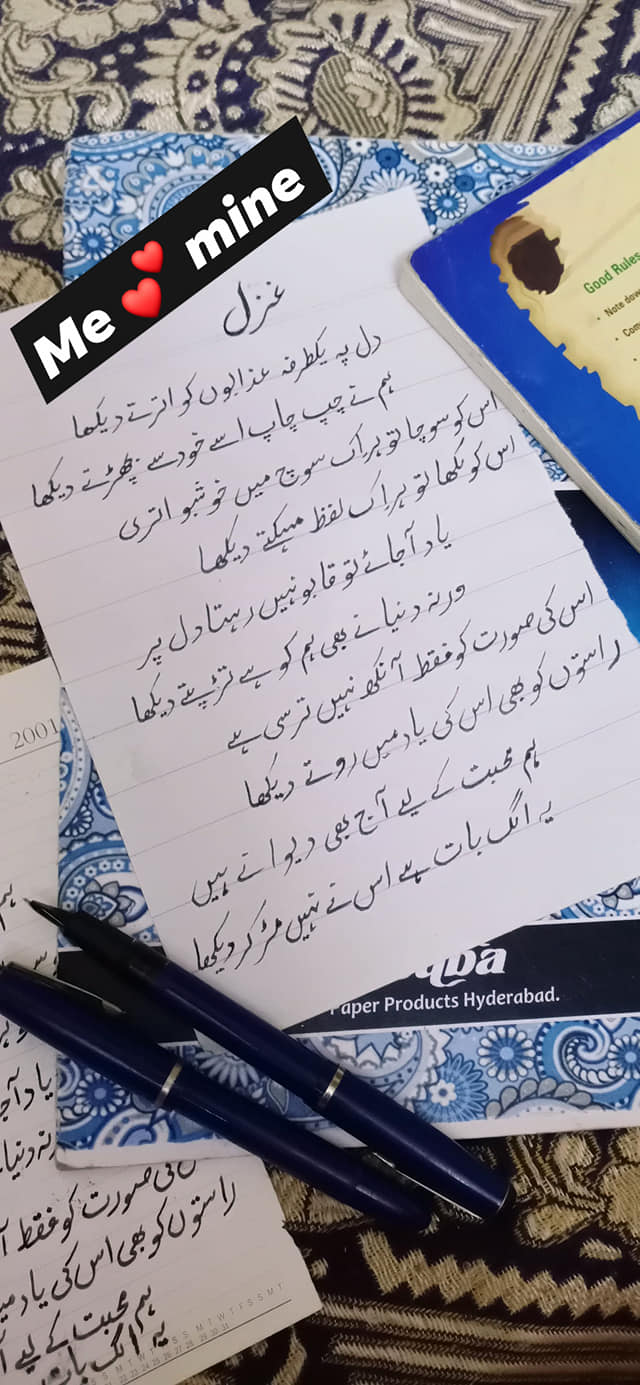 Me 💕 mine
غزل
دل پہ یکطرفہ عذابوں کو اترتے دیکھا
ہم نے چپ چاپ اسے خود سے بچھڑتے دیکھا
اس کو سوچا تو ہر اک سوچ میں خوشبو اتری
اس کو لکھا تو ہر اک لفظ مہکتے دیکھا
یاد آجائے تو قابو نہیں رہتا دل پر
ورنہ دنیا نے بھی ہم کو ہے تڑپتے دیکھا
اس کی صورت کو فقط آنکھ نہیں ترسی ہے
راستوں کو بھی اس کی یاد میں روتے دیکھا
ہم محبت کے لیے آج بھی دیوانے ہیں
یہ الگ بات ہے اس نے نہیں مڑ کر دیکھا
Good Rules
• Note dow
• Com
2001
aba
Paper Products Hyderabad.
ہم
یاد آجا
رنہ دنیا
کی صورت کو فقط آ
راستوں کو بھی اس کی یاد میں
ہم محبت کے لیے آ
یہ الگ بات
S S M T W T F S S M T